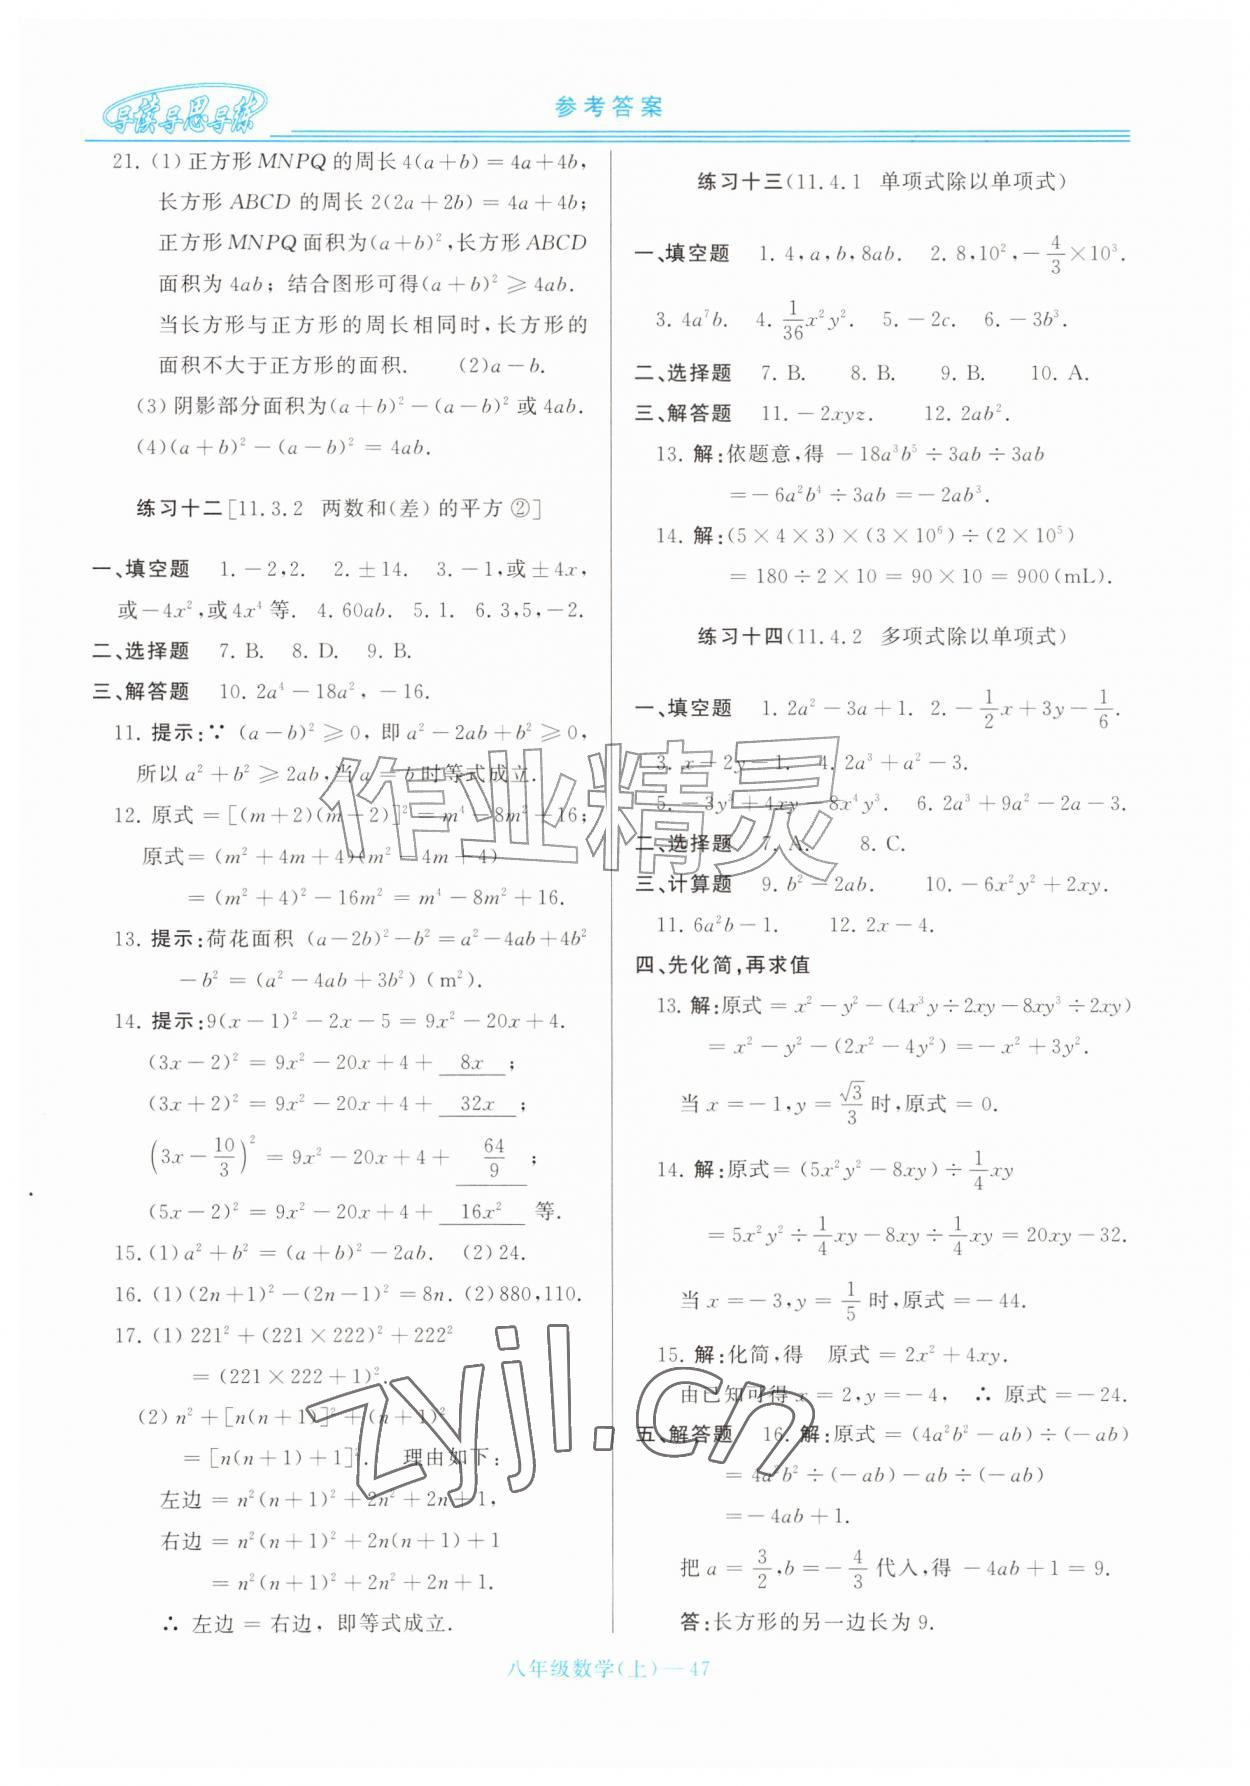 导读导思导练
参考答案
21. (1) 正方形 MNPQ 的周长 4(a+b)=4a+4b,
长方形 ABCD 的周长 2(2a+2b)=4a+4b;
正方形 MNPQ 面积为(a+b)²,长方形 ABCD
面积为 4ab; 结合图形可得(a+b)²⩾4ab.
当长方形与正方形的周长相同时,长方形的
面积不大于正方形的面积. (2)a-b.
(3) 阴影部分面积为(a+b)²-(a-b)²或 4ab.
(4)(a+b)²-(a-b)²=4ab.
练习十二[11.3.2 两数和(差)的平方②]
一、填空题 1. -2,2. 2. ±14. 3. -1,或±4x,
或-4x²,或 4x⁴ 等. 4. 60ab. 5. 1. 6. 3,5,-2.
二、选择题 7. B. 8. D. 9. B.
三、解答题 10. 2a⁴-18a², -16.
11. 提示:∵ (a-b)²⩾0, 即 a²-2ab+b²⩾0,
所以 a²+b²⩾2ab,当 a=b 时等式成立.
12. 原式=[(m+2)(m-2)]²=m⁴-8m²+16;
原式=(m²+4m+4)(m²-4m+4)
=(m²+4)²-16m²=m⁴-8m²+16.
13. 提示:荷花面积 (a-2b)²-b²=a²-4ab+4b²
-b²=(a²-4ab+3b²)(m²).
14. 提示:9(x-1)²-2x-5=9x²-20x+4.
(3x-2)²=9x²-20x+4+ 8x ;
(3x+2)²=9x²-20x+4+ 32x ;
(3x-10/3)²=9x²-20x+4+ 64/9 ;
(5x-2)²=9x²-20x+4+ 16x² 等.
15. (1) a²+b²=(a+b)²-2ab. (2) 24.
16. (1) (2n+1)²-(2n-1)²=8n. (2) 880,110.
17. (1) 221²+(221×222)²+222²
=(221×222+1)².
(2) n²+[n(n+1)]²+(n+1)²
=[n(n+1)+1]². 理由如下:
左边=n²(n+1)²+2n²+2n+1,
右边=n²(n+1)²+2n(n+1)+1
=n²(n+1)²+2n²+2n+1.
∴ 左边=右边, 即等式成立.
练习十三(11.4.1 单项式除以单项式)
一、填空题 1. 4,a,b,8ab. 2. 8,10²,-4/3×10³.
3. 4a⁷b. 4. 1/36x²y². 5. -2c. 6. -3b³.
二、选择题 7. B. 8. B. 9. B. 10. A.
三、解答题 11. -2xyz. 12. 2ab².
13. 解:依题意,得 -18a³b⁵÷3ab÷3ab
=-6a²b⁴÷3ab=-2ab³.
14. 解:(5×4×3)×(3×10⁶)÷(2×10⁵)
=180÷2×10=90×10=900(mL).
练习十四(11.4.2 多项式除以单项式)
一、填空题 1. 2a²-3a+1. 2. -1/2x+3y-1/6.
3. x+2y-1. 4. 2a³+a²-3.
5. -3y²+4xy-8x⁴y³. 6. 2a³+9a²-2a-3.
二、选择题 7. A. 8. C.
三、计算题 9. b²-2ab. 10. -6x²y²+2xy.
11. 6a²b-1. 12. 2x-4.
四、先化简,再求值
13. 解:原式=x²-y²-(4x³y÷2xy-8xy³÷2xy)
=x²-y²-(2x²-4y²)=-x²+3y².
当 x=-1,y=√3/3 时,原式=0.
14. 解:原式=(5x²y²-8xy)÷1/4xy
=5x²y²÷1/4xy-8xy÷1/4xy=20xy-32.
当 x=-3,y=1/5 时,原式=-44.
15. 解:化简,得 原式=2x²+4xy.
由已知可得 x=2,y=-4, ∴ 原式=-24.
五、解答题 16. 解:原式=(4a²b²-ab)÷(-ab)
=4a²b²÷(-ab)-ab÷(-ab)
=-4ab+1.
把 a=3/2,b=-4/3 代入,得 -4ab+1=9.
答:长方形的另一边长为 9.
八年级数学(上)—47
作业精灵
zyjl.cn